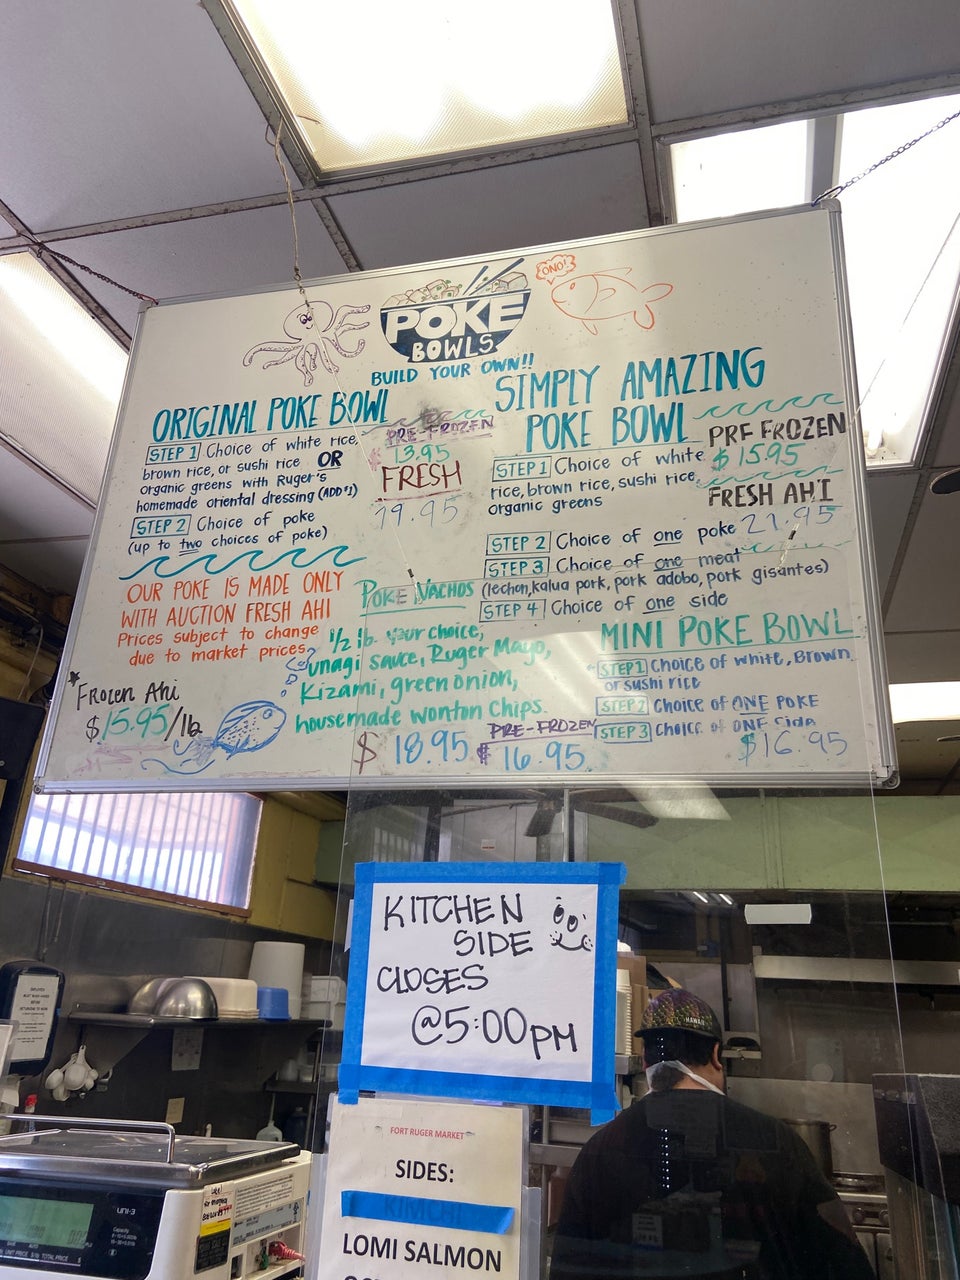 ONO!
POKE
BOWLS
BUILD YOUR OWN!!
ORIGINAL POKE BOWL
STEP 1 Choice of white rice,
brown rice, or sushi rice OR
organic greens with Ruger's
homemade oriental dressing (ADD $1)
STEP 2 Choice of poke
(up to two choices of poke)
PRE-FROZEN
13.95
FRESH
19.95
OUR POKE IS MADE ONLY
WITH AUCTION FRESH AHI
Prices subject to change
due to market prices
Frozen Ahi
$15.95/lb
SIMPLY AMAZING
POKE BOWL
PRE FROZEN
$15.95
FRESH AHI
21.95
STEP 1 Choice of white
rice, brown rice, sushi rice,
organic greens
STEP 2 Choice of one poke
STEP 3 Choice of one meat
(lechon, kalua pork, pork adobo, pork gisantes)
STEP 4 Choice of one side
POKE NACHOS
1/2 lb. your choice,
unagi sauce, Ruger Mayo,
Kizami, green onion,
housemade wonton chips.
$ 18.95
PRE-FROZEN
$ 16.95
MINI POKE BOWL
STEP 1 Choice of white, Brown
or sushi rice
STEP 2 Choice of ONE POKE
STEP 3 Choice of ONE Side
$16.95
KITCHEN
SIDE
CLOSES
@5:00PM
FORT RUGER MARKET
SIDES:
KIMCHI
LOMI SALMON
HAWAII
UNI-3